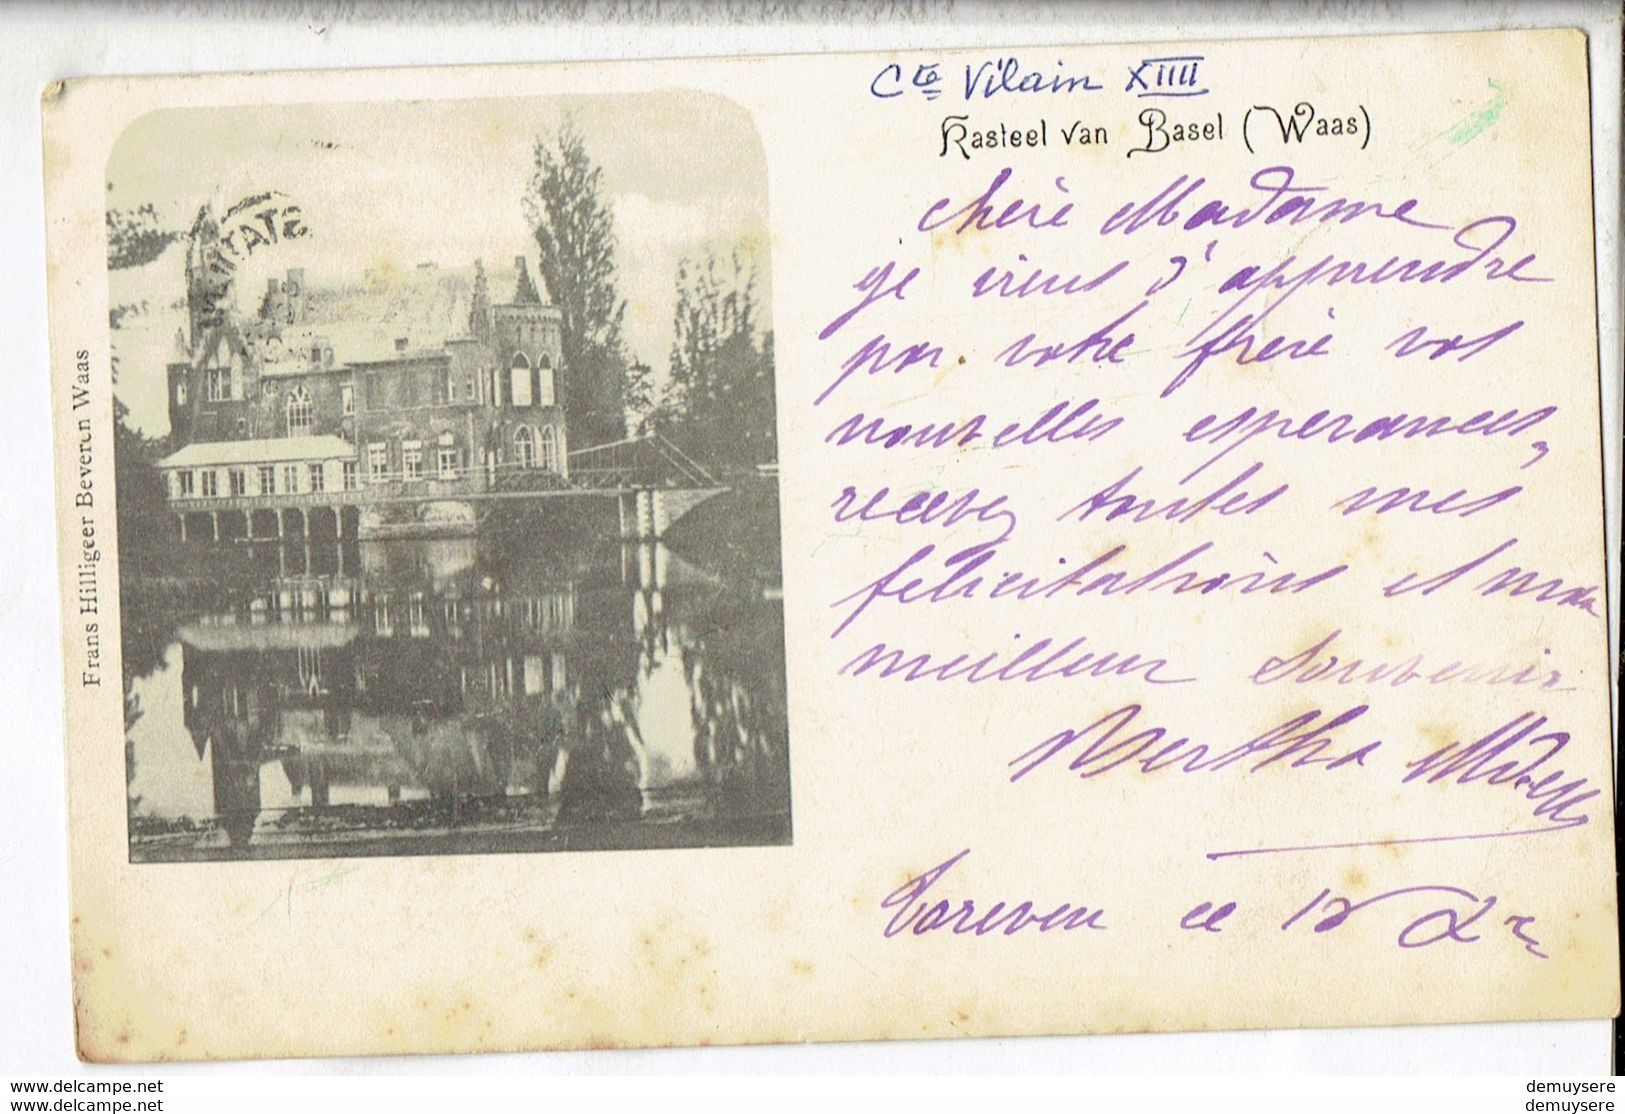 Cte Vilain XIIII
Kasteel van Basel (Waas)
Frans Hilligeer Beveren Waas
chère Madame
je viens d'apprendre
par votre frère vos
nouvelles esperances,
recevez toutes mes
felicitations et mon
meilleur Souvenir
Bertha
ce 12
STAT
www.delcampe.net
demuysere
www.delcampe.net
demuysere